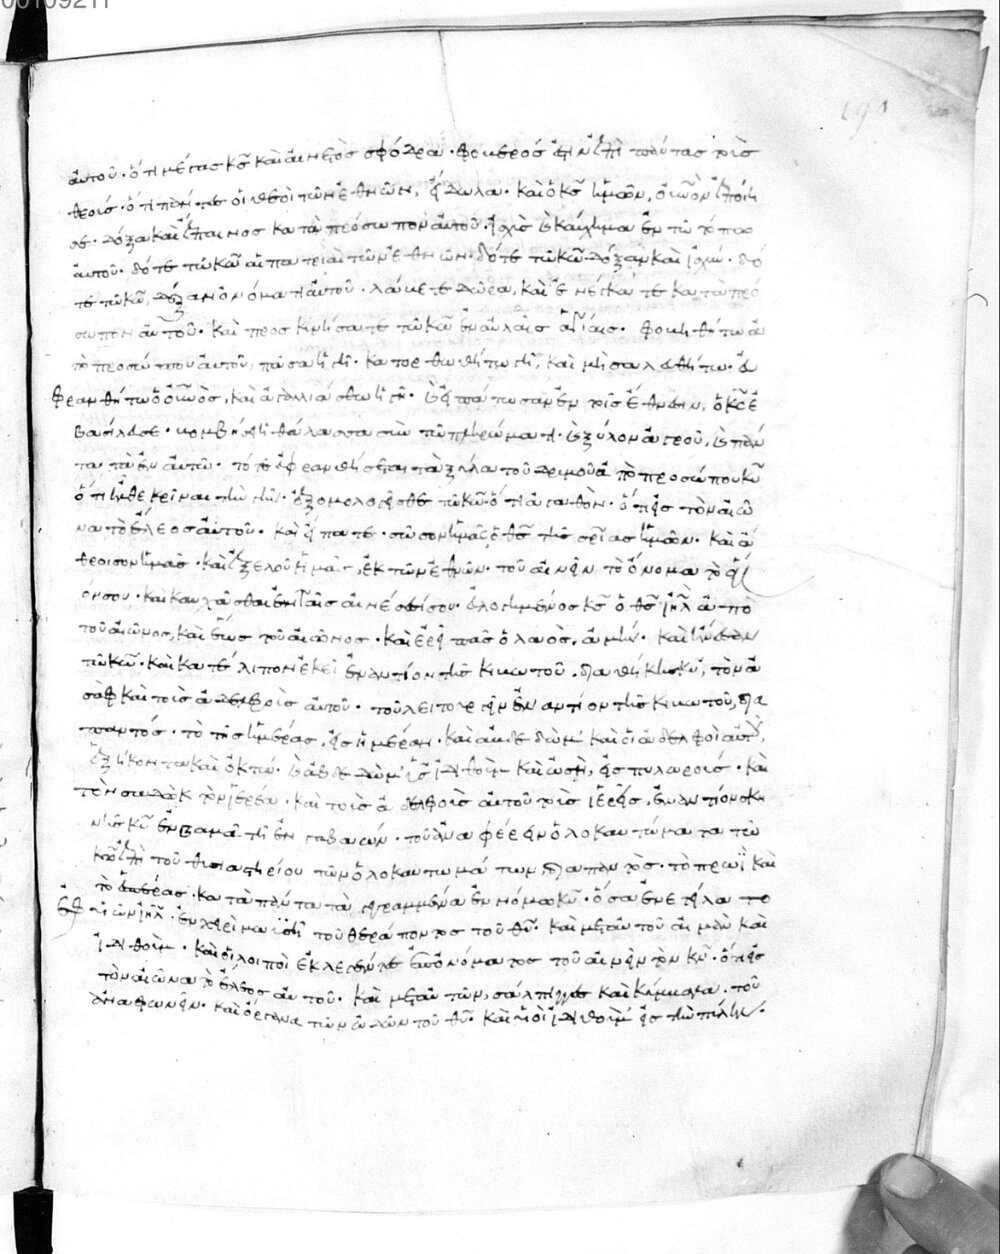 00109211
190
αὐτοῦ· ὅτι μέγας κς καὶ αἰνετὸς σφόδρα· φοβερός ἐστιν ἐπὶ πάντας τοὺς
θεούς· ὅτι πάντες οἱ θεοὶ τῶν ἐθνῶν, εἴδωλα· καὶ ὁ κς ἡμῶν, οὐνὸν ἐποίη
σε· δόξα καὶ ἔπαινος κατὰ πρόσωπον αὐτοῦ· ἰσχὺς καὶ καύχημα ἐν τόπῳ
αὐτοῦ· δότε τῷ κω αἱ πατριαὶ τῶν ἐθνῶν· δότε τῷ κω δόξαν καὶ ἰσχύν· δό
τε τῷ κω, δόξαν ὀνόματι αὐτοῦ· λάβετε δῶρα, καὶ ἐνέγκατε κατὰ πρό
σωπον αὐτοῦ· καὶ προσκυνήσατε τῷ κω ἐν αὐλαῖς ἁγίαις· φοβηθήτω ἀ
πὸ προσώπου αὐτοῦ, πᾶσα ἡ γῆ· κατορθωθήτω γῆ, καὶ μὴ σαλευθήτω· εὐ
φρανθήτω ὁ οὐνὸς, καὶ ἀγαλλιάσθω ἡ γῆ· καὶ εἰπάτωσαν ἐν τοῖς ἔθνεσιν, ὁ κς ἐ
βασίλευσε· βομβήσει θάλασσα σὺν τῷ πληρώματι· καὶ ξύλον ἀγροῦ, καὶ πάν
τα τὰ ἐν αὐτῷ· τότε εὐφρανθήσεται τὰ ξύλα τοῦ δρυμοῦ ἀπὸ προσώπου κυ
ὅτι ἦλθε κρῖναι τὴν γῆν· ἐξομολογεῖσθε τῷ κω ὅτι ἀγαθὸν· ὅτι εἰς τὸν αἰῶ
να τὸ ἔλεος αὐτοῦ· καὶ εἴπατε· σῶσον ἡμᾶς ὁ θς τῆς σρίας ἡμῶν· καὶ ἄ
θροισον ἡμᾶς· καὶ ἐξελοῦ ἡμᾶς, ἐκ τῶν ἐθνῶν· τοῦ αἰνεῖν τὸ ὄνομα τὸ ἅγι
όν σου· καὶ καυχᾶσθαι ἐν ταῖς αἰνέσεσί σου· εὐλογημένος κς ὁ θς ιηλ ἀπὸ
τοῦ αἰῶνος, καὶ ἕως τοῦ αἰῶνος· καὶ ἐρεῖ πᾶς ὁ λαὸς, ἀμήν· καὶ ᾔνεσαν
τῷ κω· καὶ κατέλιπον ἐκεῖ ἐναντίον τῆς κιβωτοῦ διαθήκης κυ, τὸν ἀ
σὰφ καὶ τοὺς ἀδελφοὺς αὐτοῦ· τοῦ λειτουργεῖν ἐναντίον τῆς κιβωτοῦ, δια
παντός· τὸ τῆς ἡμέρας, εἰς ἡμέραν· καὶ ἀβδεδὼμ καὶ οἱ ἀδελφοὶ αὐτοῦ,
ἑξήκοντα καὶ ὀκτώ· καὶ ἀβδεδὼμ υἱὸς ἰδιθοὺμ καὶ ὡσὴ, εἰς πυλωρούς· καὶ
τὸν σαδὼκ τὸν ἱερέα· καὶ τοὺς ἀδελφοὺς αὐτοῦ τοὺς ἱερεῖς, ἐναντίον σκη
νῆς κυ ἐν βαμᾶ τῇ ἐν γαβαών· τοῦ ἀναφέρειν ὁλοκαυτώματα τῷ
κω ἐπὶ τοῦ θυσιαστηρίου τῶν ὁλοκαυτωμάτων, διαπαντὸς· τὸ πρωῒ καὶ
τὸ ἑσπέρας· κατὰ πάντα τὰ γεγραμμένα ἐν νόμῳ κυ· ὅσα ἐνετείλατο
ἐφ υἱῶν ιηλ· ἐν χειρὶ μωϋσῆ τοῦ θεράποντος τοῦ θυ· καὶ μετ αὐτοῦ αἰμὰν καὶ
ἰδιθοὺμ· καὶ οἱ λοιποὶ ἐκλεγέντες ἐπ ὀνόματος τοῦ αἰνεῖν τὸν κν· ὅτι εἰς
τὸν αἰῶνα τὸ ἔλεος αὐτοῦ· καὶ μετ αὐτῶν, σάλπιγγες καὶ κύμβαλα· τοῦ
ἀναφωνεῖν· καὶ ὄργανα τῶν ᾠδῶν τοῦ θυ· καὶ υἱοὶ ἰδιθοὺμ εἰς τὴν πύλην·